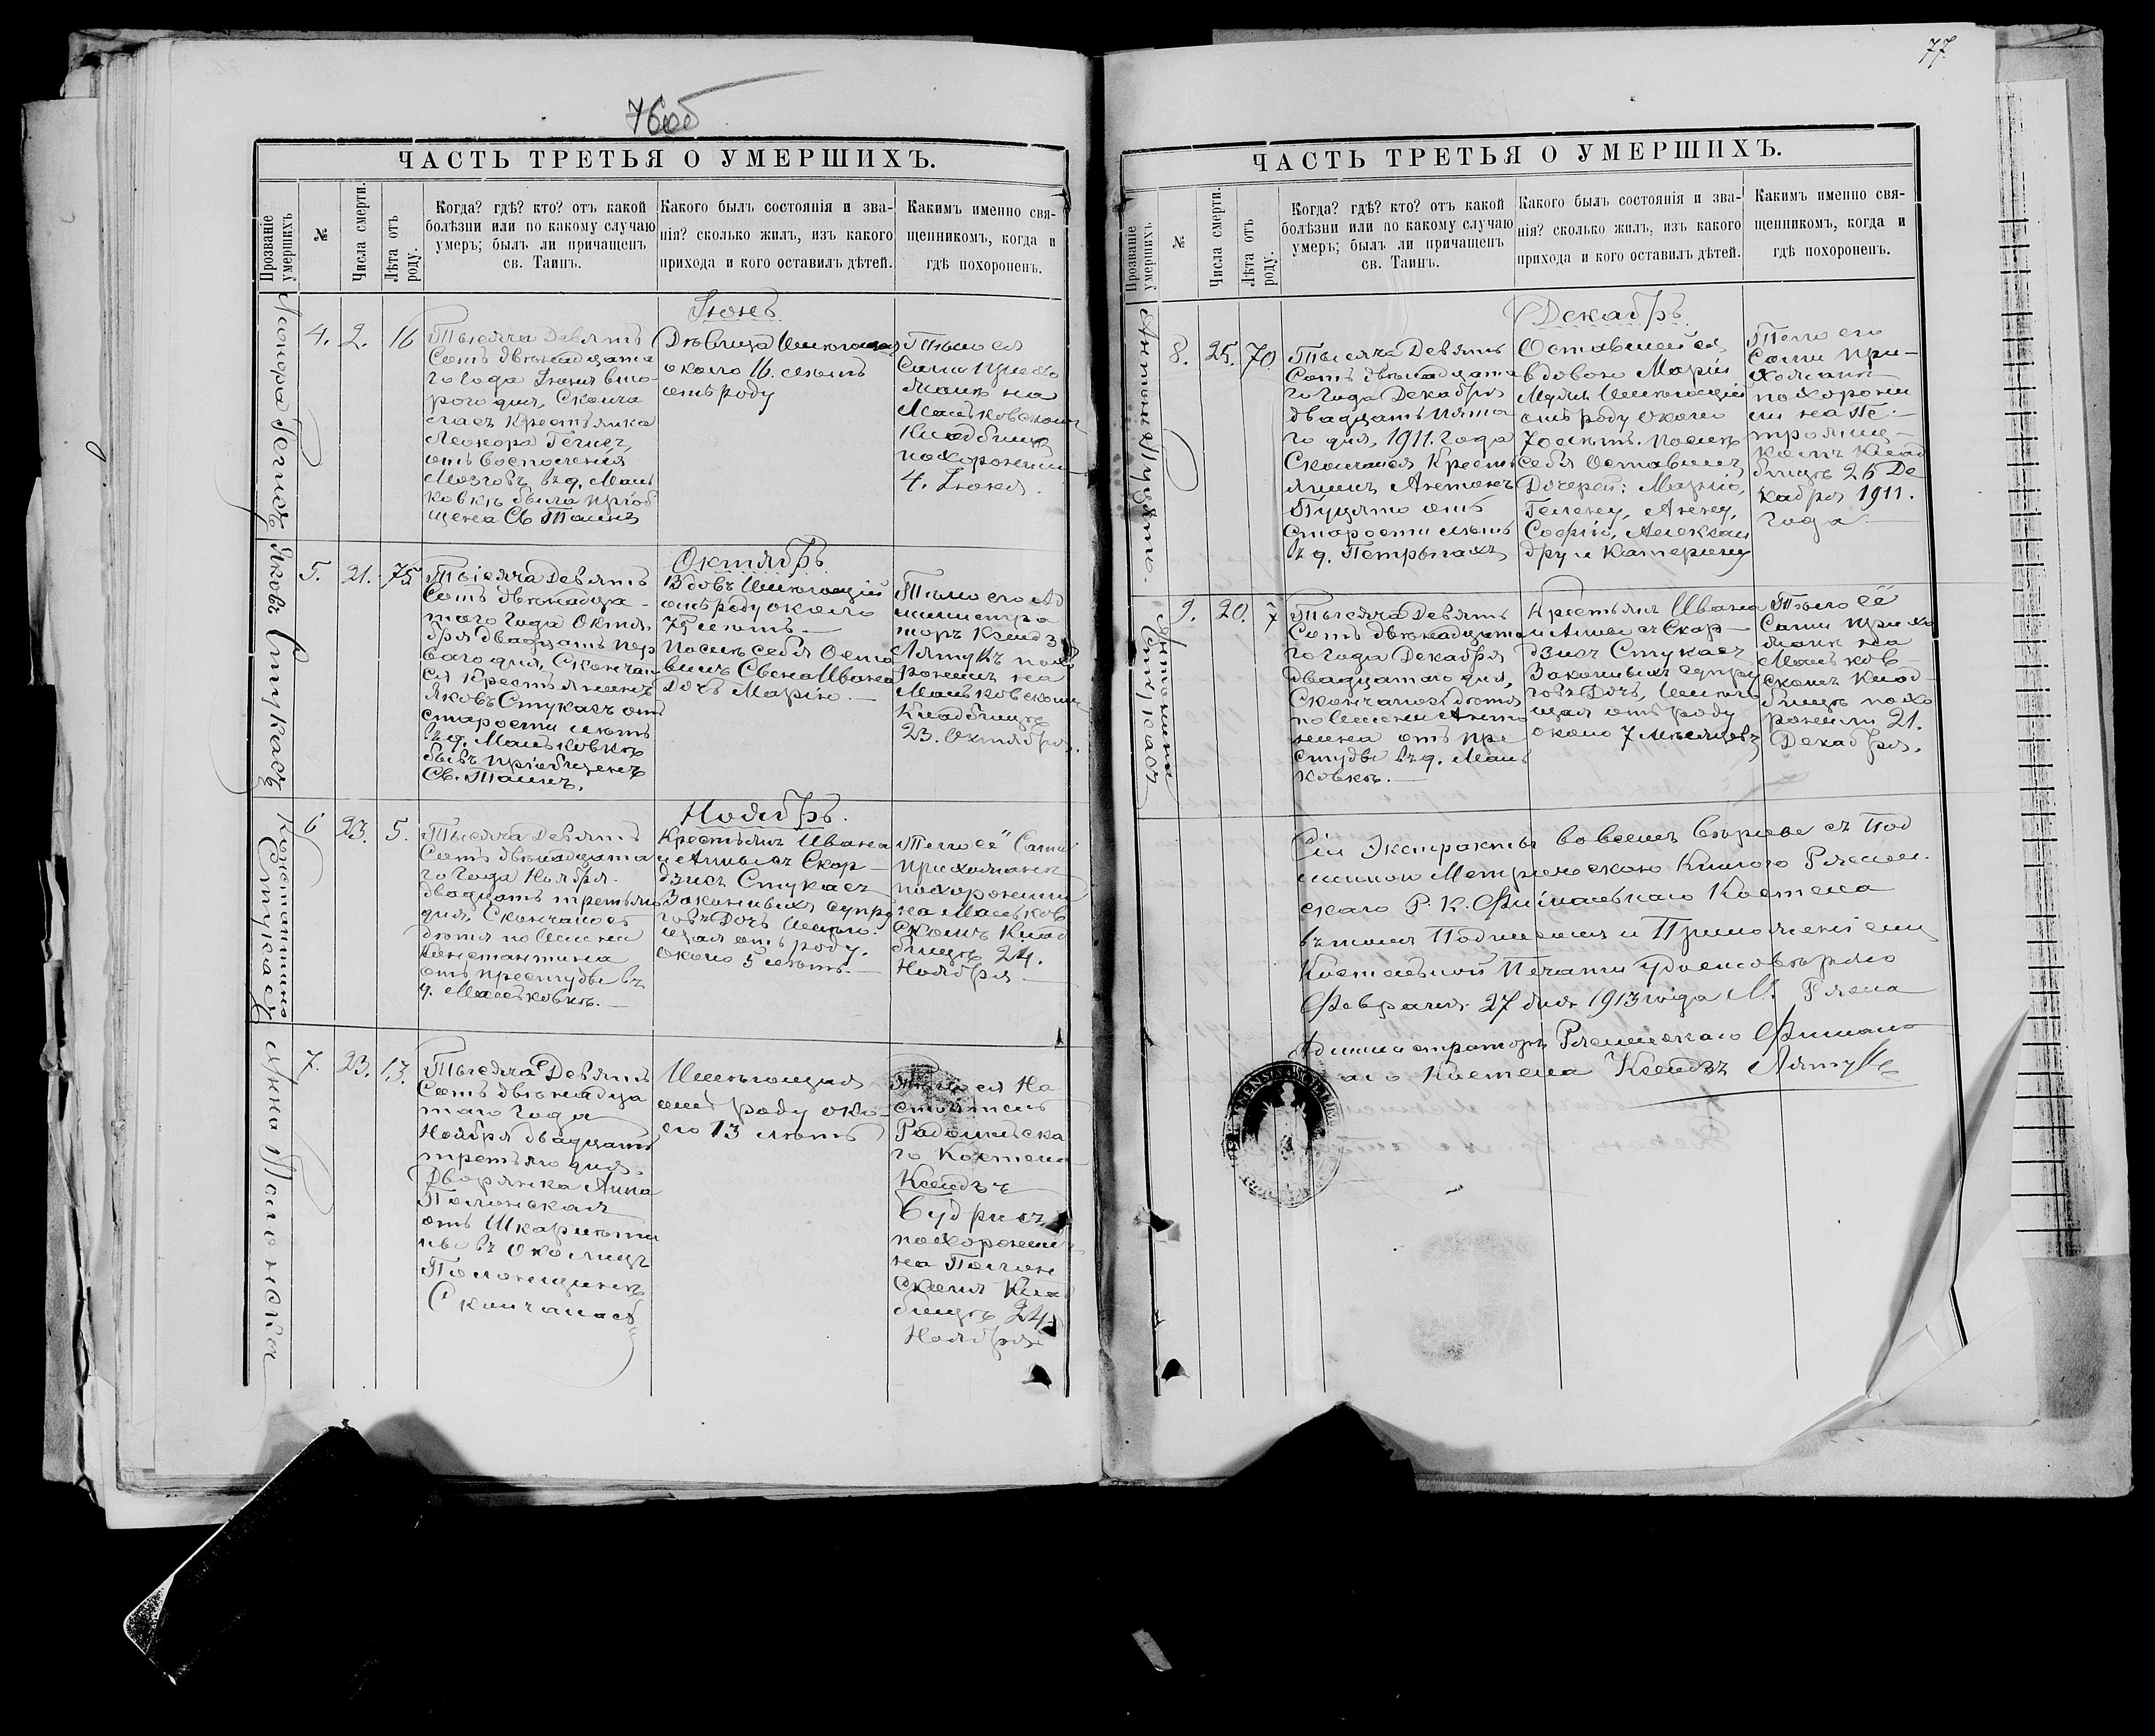 76об
ЧАСТЬ ТРЕТЬЯ О УМЕРШИХЪ.
Прозваніе умершихъ
№
Числа смерти.
Лѣта отъ роду.
Когда? гдѣ? кто? отъ какой
болѣзни или по какому случаю
умеръ; былъ ли причащенъ
св. Таинъ.
Какого былъ состоянія и зва-
нія? сколько жилъ, изъ какого
прихода и кого оставилъ дѣтей.
Какимъ именно свя-
щенникомъ, когда и
гдѣ похороненъ.
Іюнь
4. 2. 16
Тысяча Девять
Сотъ двѣнадцата
го Года Іюня вто-
рого дня, Сконча
лась Крестьянка
Леонора
отъ воспаленія
мозговъ въ д. Мань
ковкѣ была пріоб
щена Св Таинъ
Дѣвица Имеющая
около 16. лѣтъ
отъ роду
Тѣло ея
Сами прихо
жане на
Маньковскомъ
Кладбищѣ
похоронили
4. Іюня.
Яковъ Стукасъ
Октябрь
5. 21. 75
Тысяча Девять
Сотъ двѣнадца-
таго Года Октя
бря двадцать пер
ваго дня, Скончал
ся Крестьянинъ
Яковъ Стукасъ отъ
старости лѣтъ
въ д. Маньковкѣ
бывъ пріобщенъ
Св. Таинъ.
Вдовъ Имеющій
отъ роду около
75 лѣтъ. —
Послѣ себя Оста
вилъ Сына Ивана
Дочь Марію. —
Тѣло его Ад
министра
торъ Ксендз
Лятукъ похо
ронилъ на
Маньковскомъ
Кладбищѣ
23. Октября.
Константина Стукасъ
Ноябрь.
6 23. 5.
Тысяча Девять
Сотъ двѣнадцата
го Года Ноября
двадцать третьяго
дня, Скончалось
дютя по Имени
Константина
отъ простуды въ
д. Маньковкѣ. —
Крестьянъ Ивана
и Анны съ Скор-
дзисъ Стукасъ
Законныхъ супру
говъ Дочь Имѣю-
щая отъ роду
около 5 лѣтъ. —
Тело её Сами
прихожане
похоронили
на Маньков
скомъ Клад
бищѣ 24.
Ноября —
Анна Полонска
7. 23. 13.
Тысяча Девять
Сотъ двѣнадца
таго Года
Ноября двадцать
третьяго дня.
Дворянка Анна
Полонская
отъ Шкарлати
ны въ Околицѣ
Полонщинѣ
Скончалась
Имеющая
отъ роду око-
ло 13 лѣтъ
Тѣло ея На
стоятель
го Костела
Ксендзъ
Будрисъ
похоронилъ
на Полон
скомъ Клад
бищѣ 24
Ноября
77.
ЧАСТЬ ТРЕТЬЯ О УМЕРШИХЪ.
Прозваніе умершихъ
№
Числа смерти.
Лѣта отъ роду.
Когда? гдѣ? кто? отъ какой
болѣзни или по какому случаю
умеръ; былъ ли причащенъ
св. Таинъ.
Какого былъ состоянія и зва-
нія? сколько жилъ, изъ какого
прихода и кого оставилъ дѣтей.
Какимъ именно свя-
щенникомъ, когда и
гдѣ похороненъ.
Антонъ Пуцято.
Декабрь
8. 25. 70
Тысяча Девять
Сотъ двѣнадцата
го Года Декабря
двадцать пята
го дня, 1911. Года
Скончался Кресть
янинъ Антонъ
Пуцято отъ
старости лѣтъ
въ д. Петрыгахъ
Оставшейся
вдовою Маріи
Мужъ Имеющій
отъ роду Около
70 лѣтъ. Послѣ
себя Оставилъ
Дочерей: Марію,
Гелену, Анну,
Софію, Алексан
дру и Катерину
Тело его
Сами при-
хожане
похорони
ли на Пе-
Клад
бищѣ 26 Де
кабря 1911.
Года
Антонина Стукасъ
9. 20. 7
Тысяча Девять
Сотъ двѣнадцата
го Года Декабря
двадцатаго дня,
Скончалось дютя
по Имени Анто
нина отъ про
студы въ д. Мань
ковкѣ. —
Крестьянъ Ивана
и Анны съ Скор-
дзисъ Стукасъ
Законныхъ супру
говъ Дочь, Имею
щая отъ роду
около 7 мѣсяцевъ
Тѣло её
Сами прихо
жане на
Маньков-
скомъ Клад-
бищѣ похо
ронили 21.
Декабря.
Сіи Экстракты во всемъ Вѣрные съ Под
линною Метрическою Книгою
скаго Р. К. Филіальнаго Костела
въ томъ Подписомъ и Приложеніемъ
Костельной Печати удостовѣряю
Февраля 27 дня 1913 года М. Рясна
Администраторъ Рясненскаго Филіаль
наго Костела Ксендзъ Лятукъ